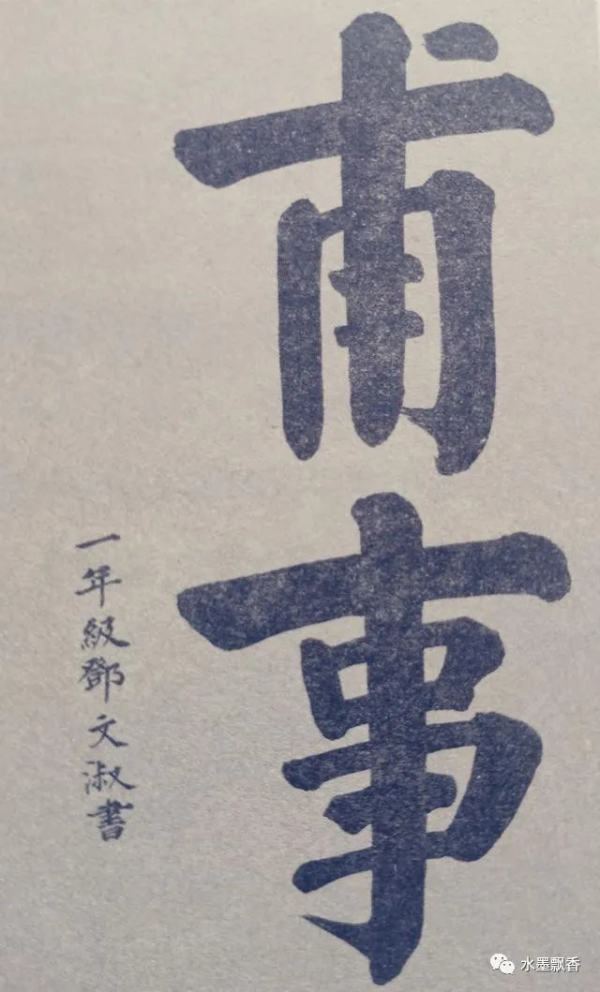 甫事
一年級鄧文淑書
水墨飘香